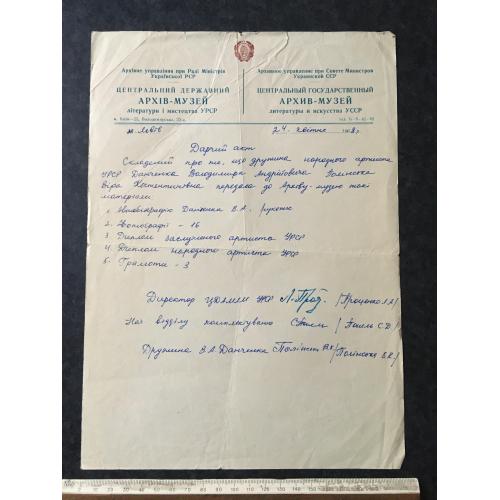 Архівне управління при Раді Міністрів
Української РСР
ЦЕНТРАЛЬНИЙ ДЕРЖАВНИЙ
АРХІВ-МУЗЕЙ
літератури і мистецтва УРСР
м. Київ—25, Володимирська, 22-а.
Архивное управление при Совете Министров
Украинской ССР
ЦЕНТРАЛЬНЫЙ ГОСУДАРСТВЕННЫЙ
АРХИВ-МУЗЕЙ
литературы и искусства УССР
м. Львів
24 квітня
Дарчий акт
Складений про те, що дружина народного артиста
УРСР Данченка Володимира Андрійовича Полінська
Віра Костянтинівна передала до Архіву-музею такі
матеріали
1. Автобіографію Данченка В.А. рукопис
2. Фотографії - 16
3. Диплом заслуженого артиста УРСР
4. Диплом народного артиста УРСР
5. Грамоти - 3
Директор ЦДАМЛМ УРСР /Проценко Л.А/
Нач відділу комплектування
Дружина В.А. Данченка /Полінська В.К/